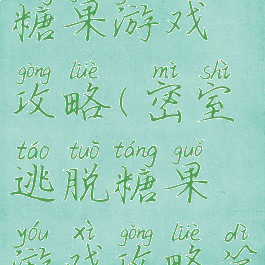 糖果游戏
gōng lüè mì shì
攻略(密室
táo tuō táng guǒ
逃脱糖果
yóu xì gōng lüè dì
游戏攻略